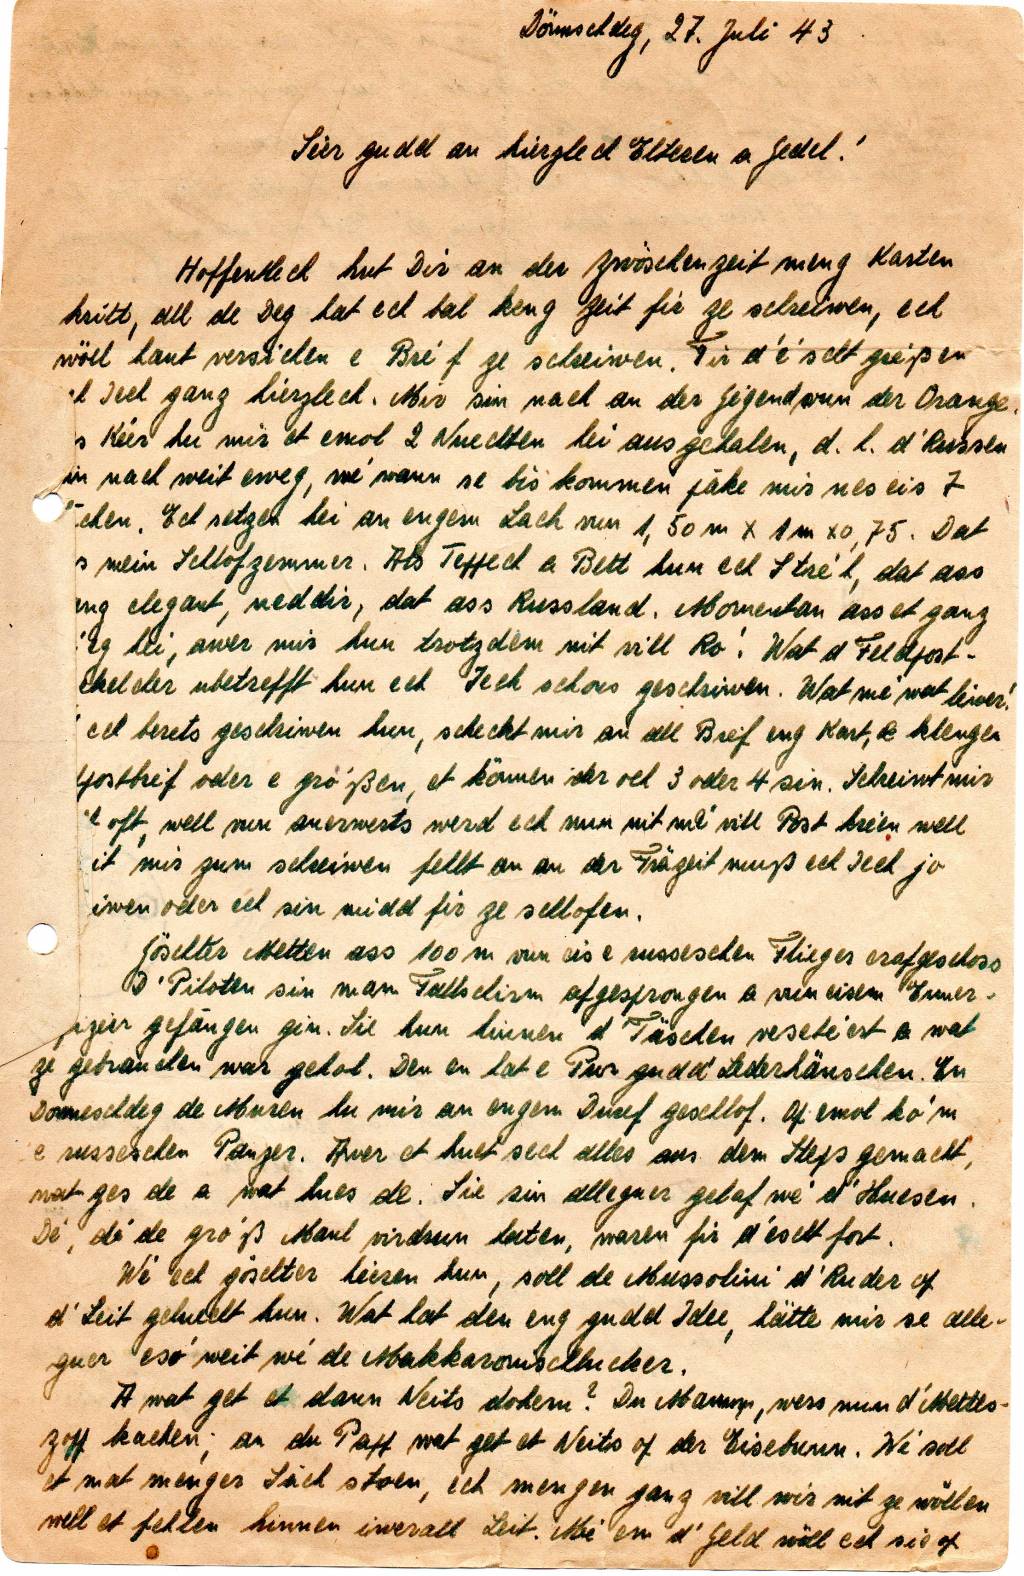 Dönschdeg, 27. Juli 43
Léir gudd an hierzlech Elteren a Jedel!
Hoffentlech hut Dir an der Zwöschenzeit meng Karten
kritt, all de Deg hat ech bal keng Zeit fir ze schreiwen, ech
wöll haut versichen e Bréif ze schreiwen. Fir d'éischt gréißen
ech Iech ganz hierzlech. Mir sin nach an der Gégend vun der Orange.
s Kéier hu mir et emol 2 Nuechten hei ausgehalen, d. h. d'Russen
in nach weit eweg, wé wann se bis kommen jäke mir nes eis 7
chen. Ech setzen hei an engem Lach vun 1,50 m x 1 m x 0,75. Dat
s mein Schlofzemmer. Als Teppech a Bett hun ech Stréh, dat ass
eng elegant, neddir, dat ass Russland. Momentan ass et ganz
eg hei, awer mir hun trotzdem nit vill Ro! Wat d Feldpost-
ubetrefft hun ech Iech schons geschriwen. Wat mé wat léiwer!
ech berets geschriwen hun, scheckt mir an all Bréif eng Kart, e klengen
postbréif oder e gró'ßen, et können der och 3 oder 4 sin. Schreiwt mir
oft, well vun anerwerts werd ech nun nit mé vill Post kréien well
it mir zum schreiwen fehlt an an der Fräzeit muß ech Iech jo
iwen oder ech sin midd fir ze schlofen.
Göschter Metten ass 100 m vun eis e russeschen Flieger erafgeschoss
D'Piloten sin mam Fallschirm ofgesprongen a vun eisem
gefangen gin. Sie hun hinnen d'Täschen a wat
ze gebrauchen war geholl. Den en hat e Puer gudd Lederhänschen. En
Donneschdeg de Muren hu mir an engem Duref geschlof. Of emol kó'm
e russeschen Panzer. Awer et huet sech alles aus dem Steps gemacht,
wat ges de a wat hues de. Sie sin alleguer gelaf wé d'Huesen.
Dé, dé de gró'ß Maul virdrun haten, waren fir d'éischt fort.
Wé ech göschter héieren hun, soll de Mussolini d'Ruder of
d'Seit geluecht hun. Wat hat den eng gudd Idee, hätte mir se alle-
guer esó weit wé de Makkaronischlucker.
A wat get et dann Neits dohem? Du Mamm, wers nun d'Mettes-
zopp kachen; an du Papp wat get et Neits of der Eisebunn. Wé soll
et mat menger Säch stoen, ech mengen ganz vill wir nit ze wöllen
well et fehlen hinnen iwerall Leit. Mé em d'Geld wöll ech sie of